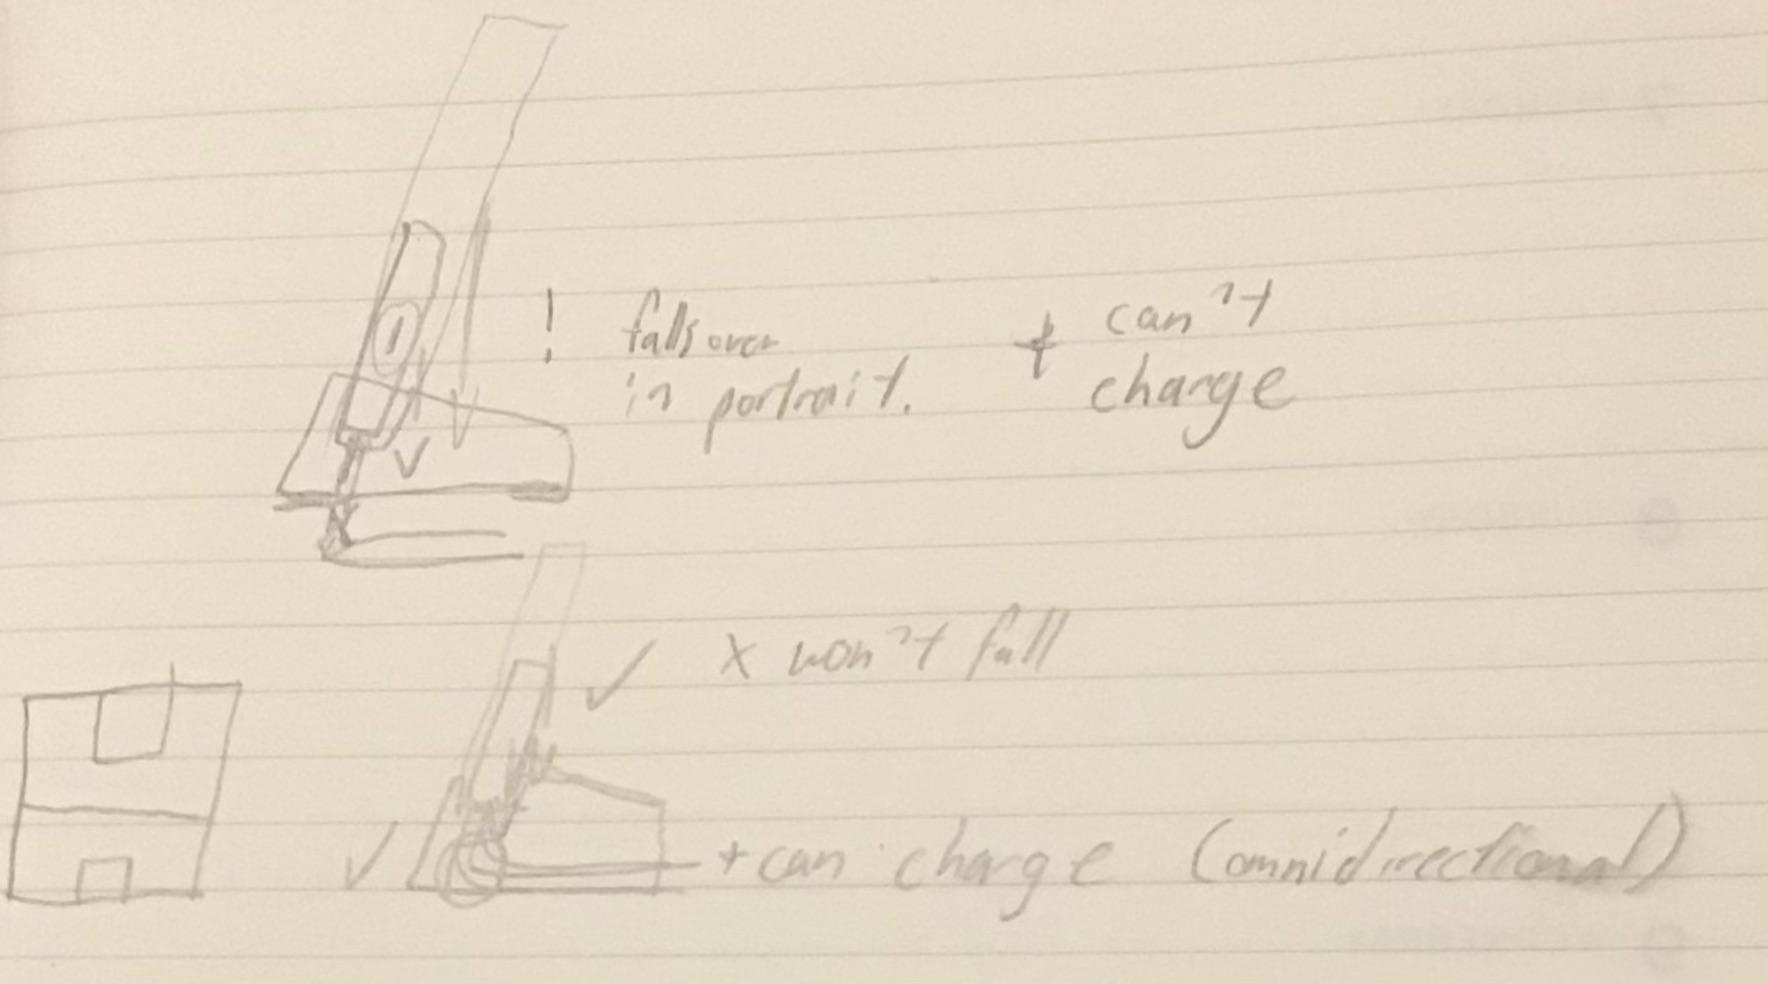 ! falls over
in portrait.
+ can't
charge
✓ x won't fall
✓ + can charge (omnidirectional)